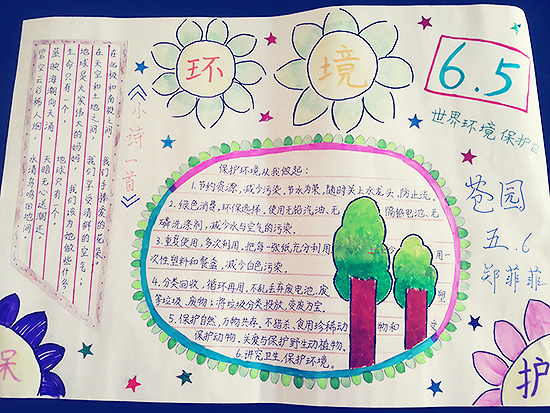 环
境
6.5
世界环境保护日
苍园
五.6
郑菲菲
《小诗一首》
在北极和南极之间, 我们手捧爱的花朵。
在天空和土地之间, 我们享受清鲜的空气。
地球是大家伟大的妈妈, 我们该为她做些什么?
生命只有一个, 地球只有一个。
海潮向天涌, 天暗无心送潮
碧空云彩稀人烟, 水清鸟鸣田地间。
保护环境从我做起:
1.节约资源,减少污染,节水为荣,随时关上水龙头,防止流。
2.绿色消费,环保选择,使用无铅汽油、无 隔铅电池、无
磷洗涤剂,减少水与空气的污染。
3.重复使用,多次利用,把每一张纸充分利用 用一
次性塑料和餐盒,减少白色污染。
4.分类回收,循环再用,不乱丢弃废电池,废 塑
等垃圾、废物;将垃圾分类投放,变废为宝。
5.保护自然,万物共存,不猎杀、食用珍稀动 物和 受
保护动物,关爱与保护野生动植物。
6.讲究卫生,保护环境。
保
护